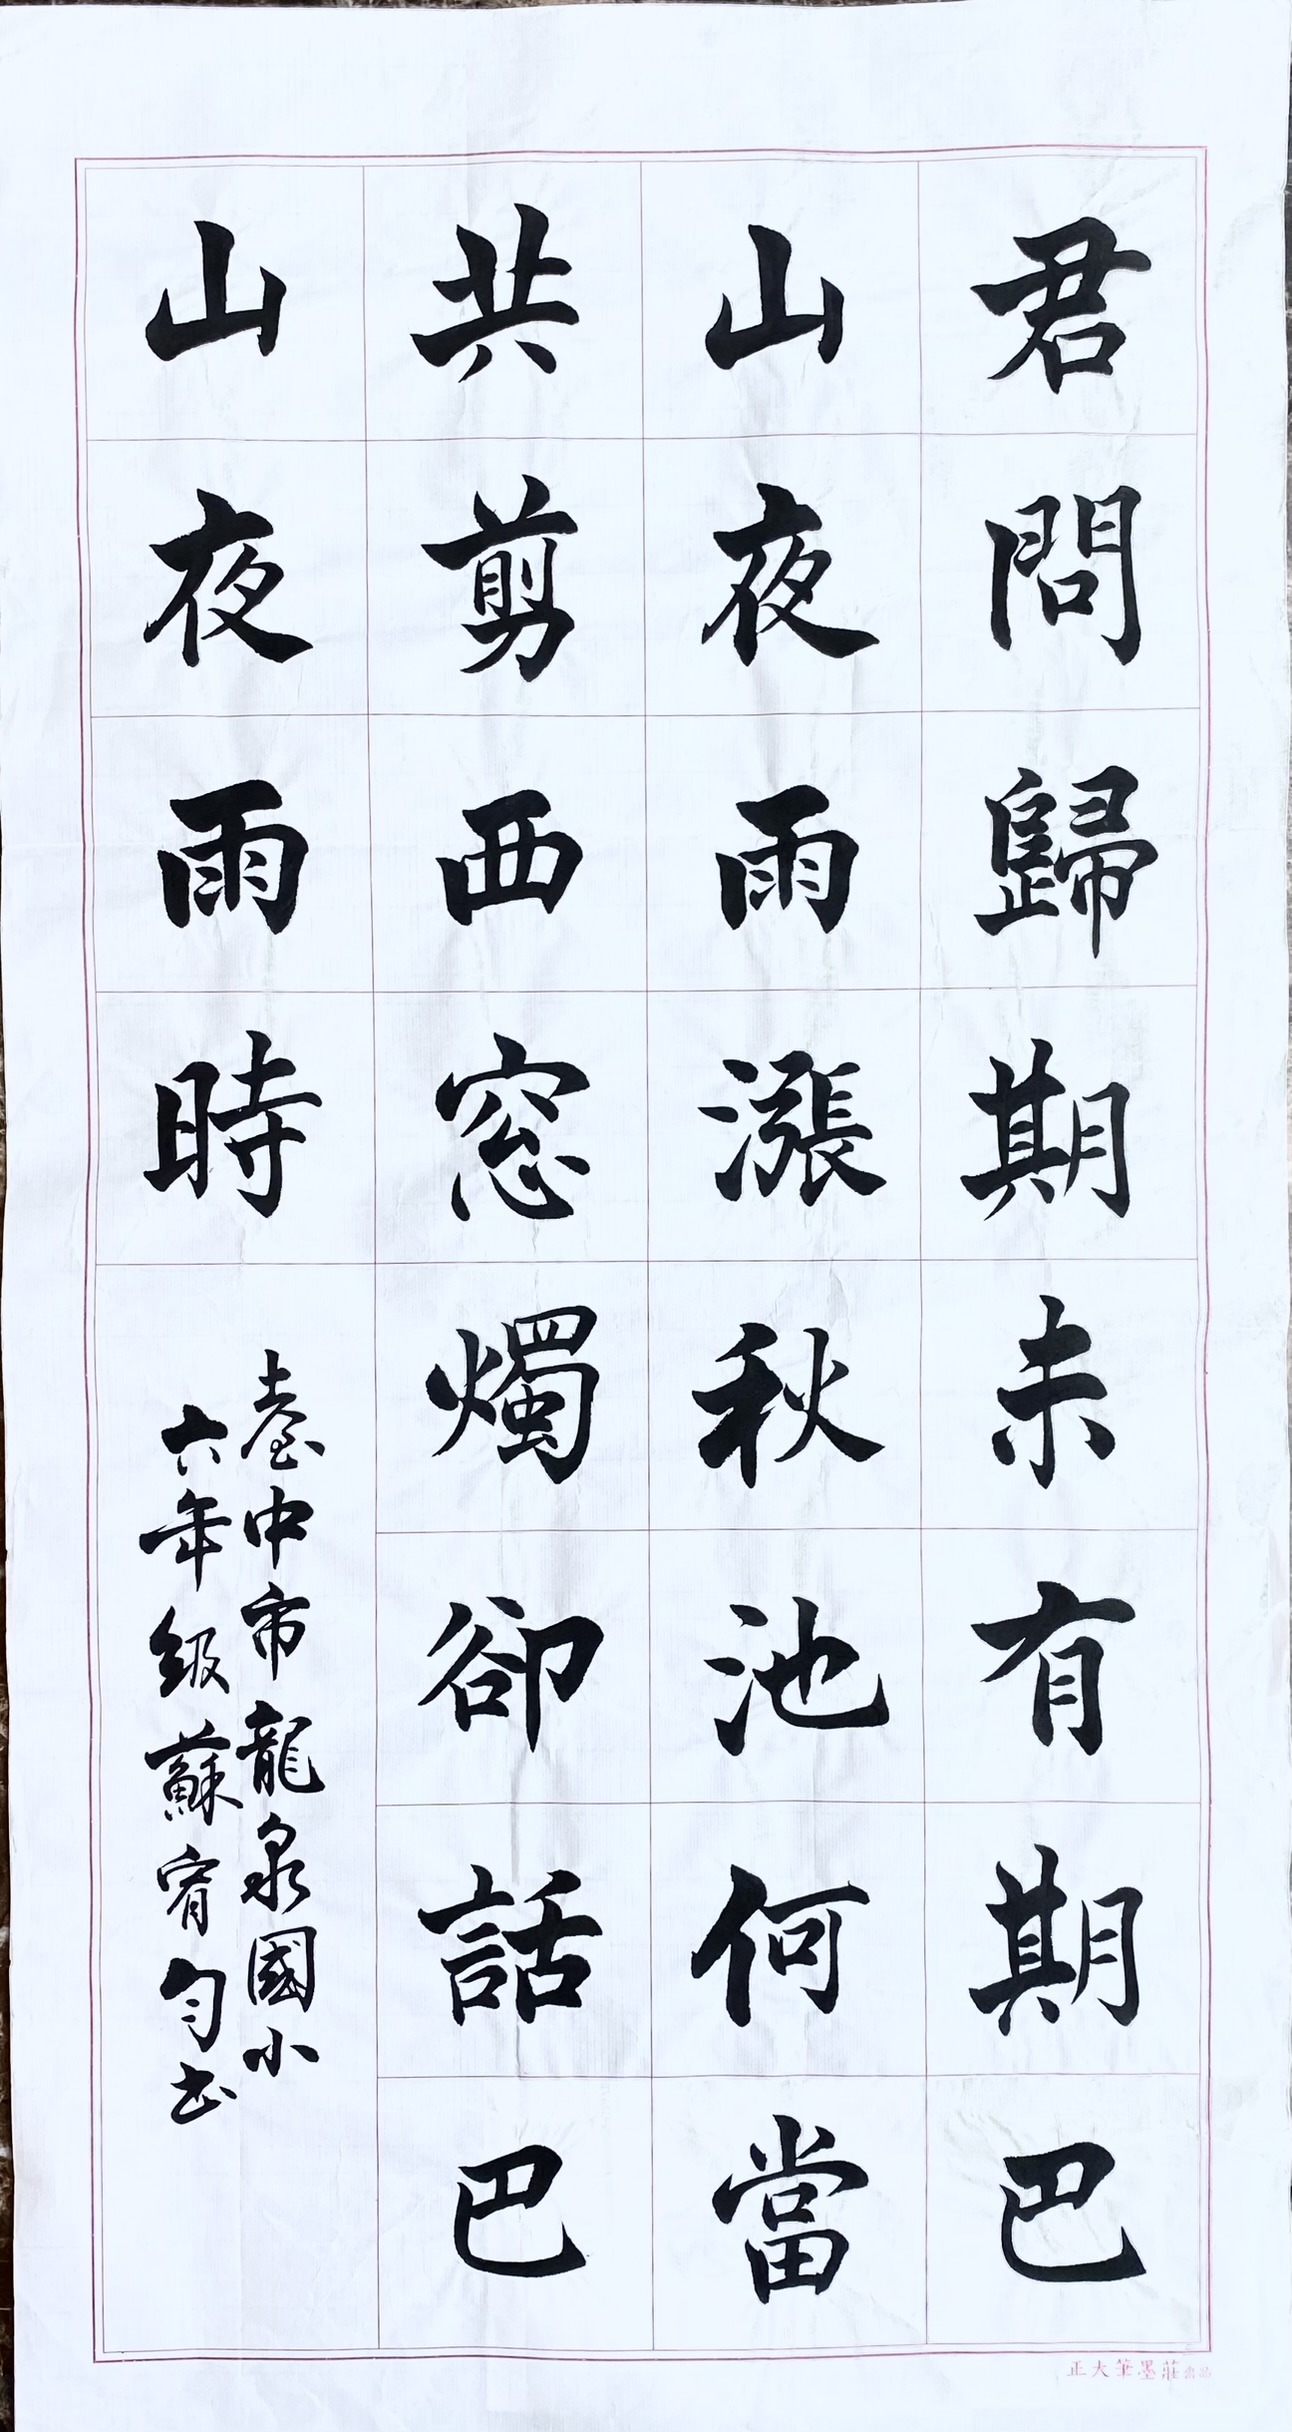 君問歸期未有期巴
山夜雨漲秋池何當
共剪西窓燭卻話巴
山夜雨時
臺中市龍泉國小
六年級蘇宥勻书
正大筆墨莊出品